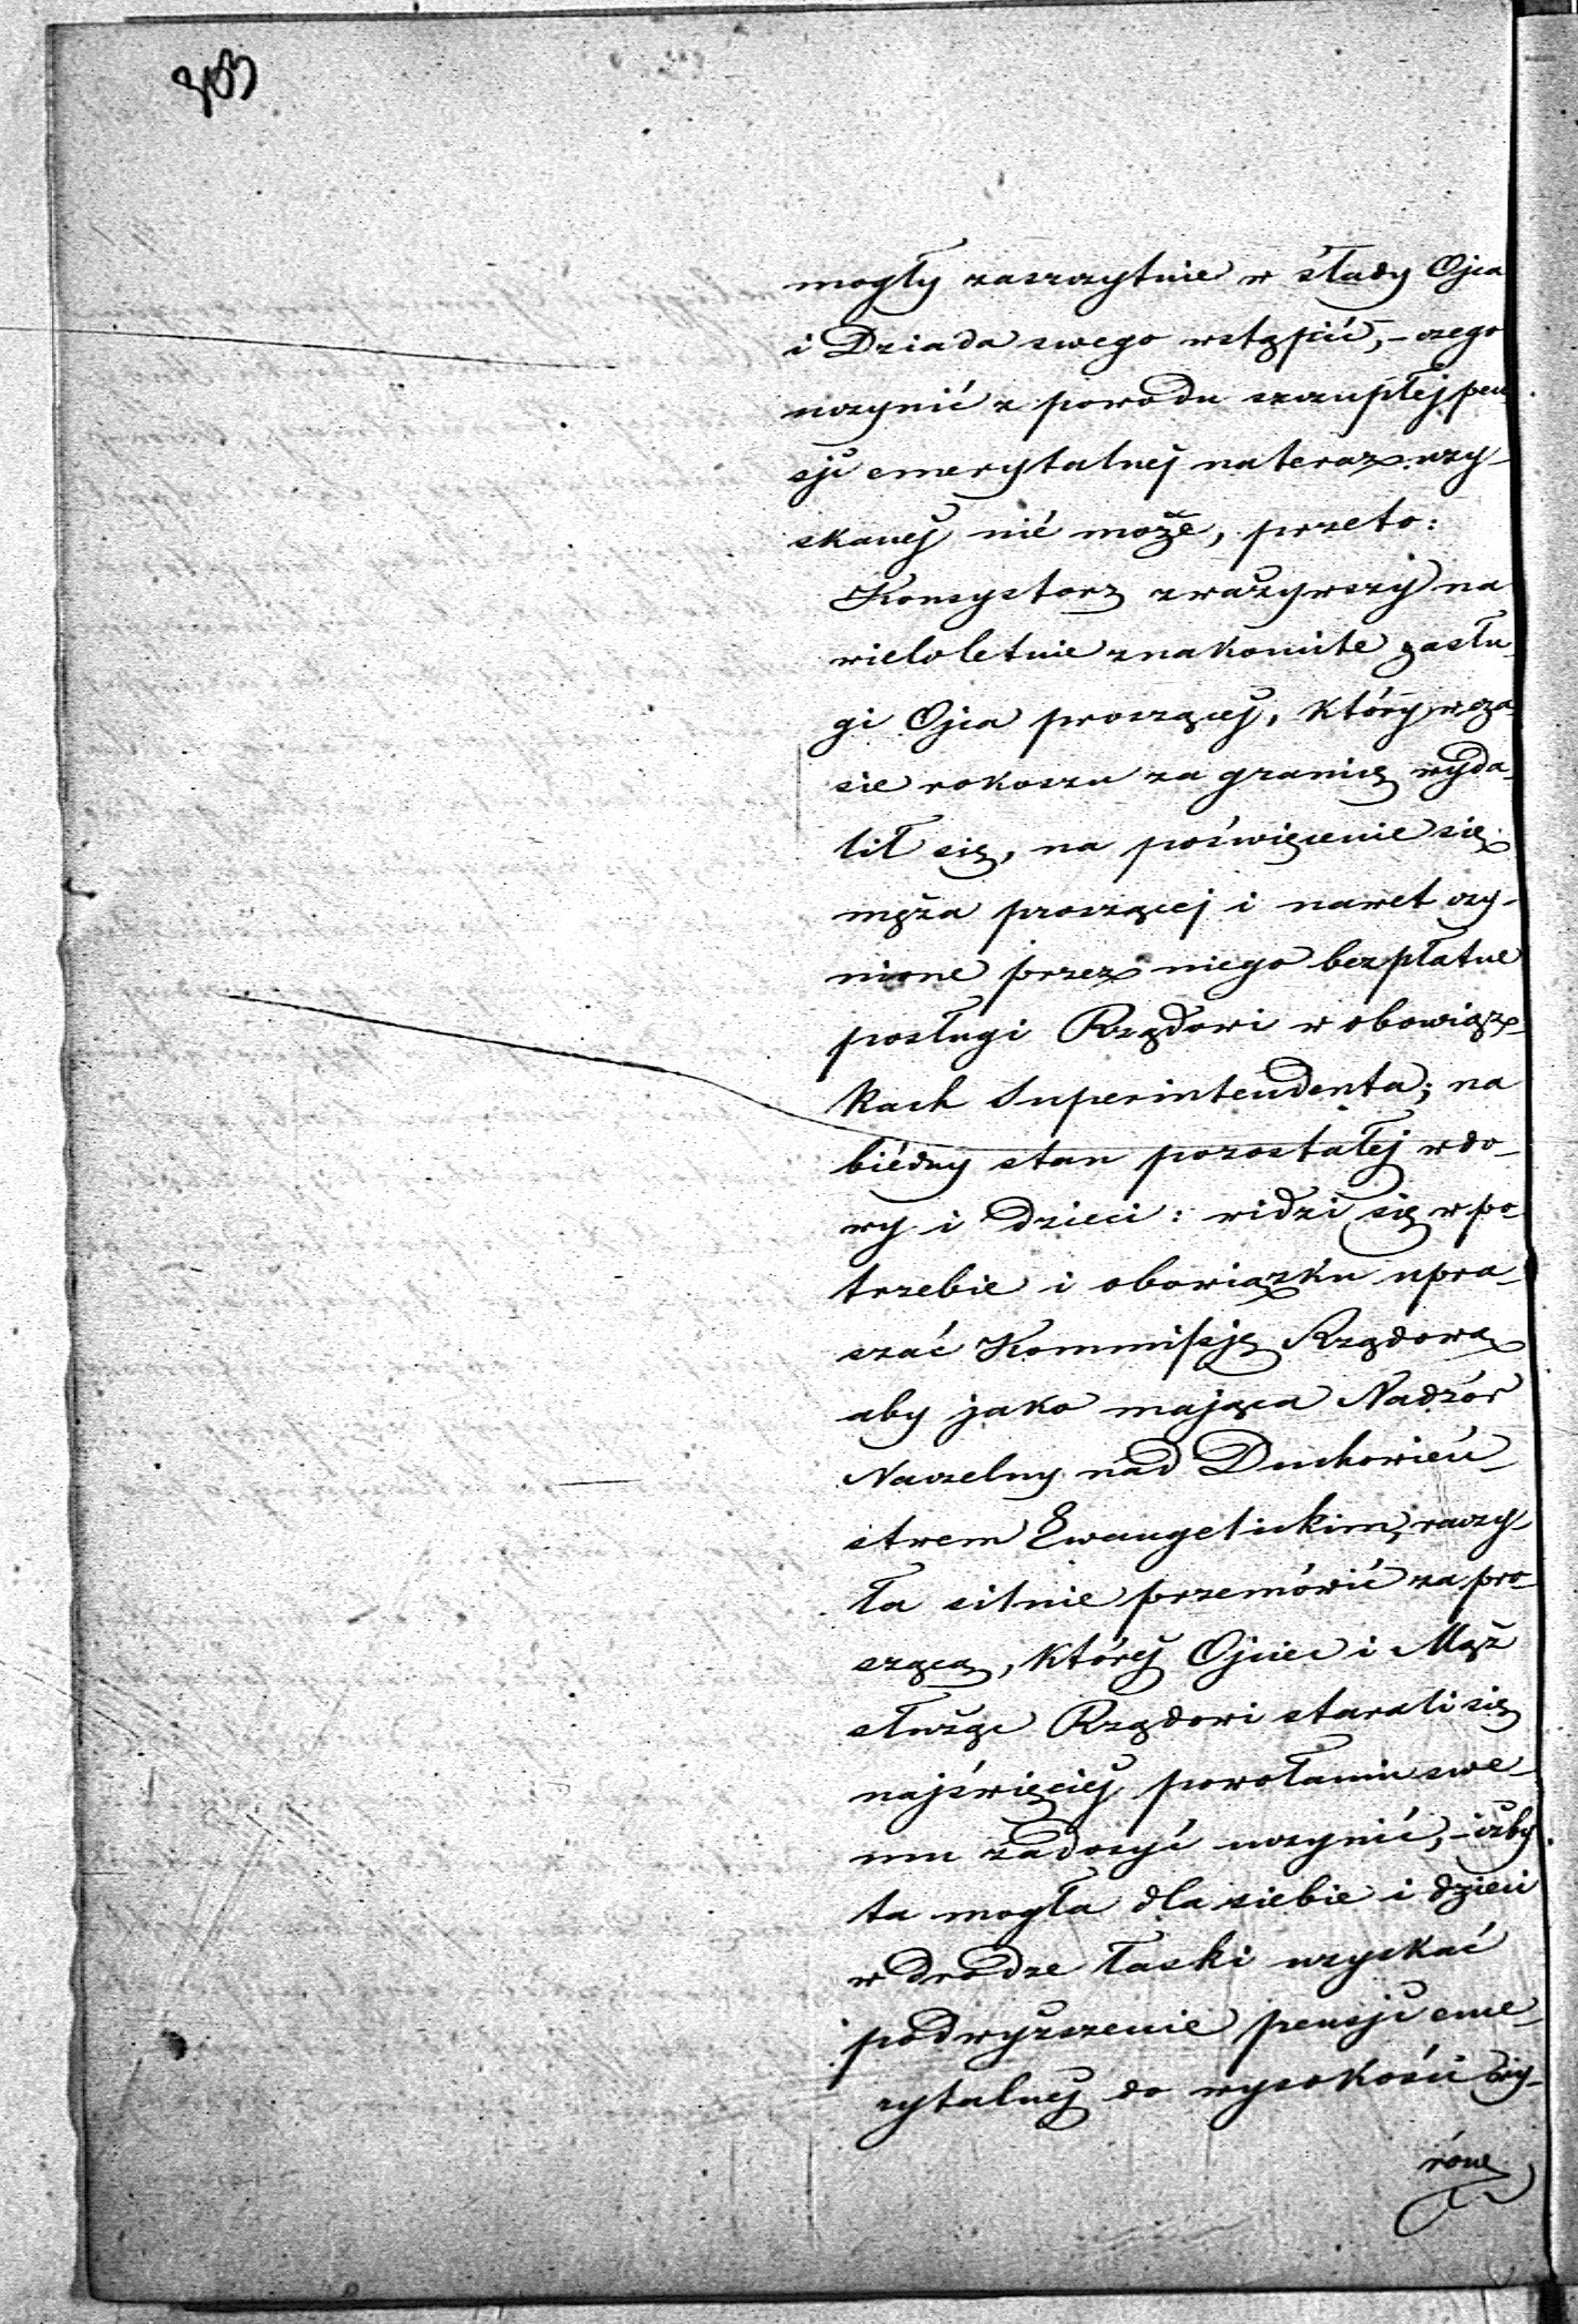 303
mogły zaszczytnie w ślady Ojca
i Dziada swego wstąpić, – czego
uczynić z powodu szczupłej pen
sji emerytalnej na teraz uzy-
skanej nié może, przeto:
Konsystorz zważywszy na
wieloletnie znakomite zasłu-
gi Ojca proszącej, który w cza-
sie rokoszu za granicę wyda-
lił się, na poświęcenie się
męża proszącej i nawet czy-
nione przez niego bezpłatne
posługi Rządowi w obowiąz-
kach Superintendenta; na
biédny stan pozostałej wdo-
wy i dzieci: widzi się w po-
trzebie i obowiązku upra-
szać Kommissję Rządową
aby jako mająca Nadzór
Naczelny nad Duchowień-
stwem Ewangelickim, raczy-
ła silnie przemówić za pro
szącą, której Ojciec i Mąż
służąc Rządowi starali się
najświęciej powołaniu swe-
mu zadosyć uczynić, – iżby
ta mogła dla siebie i dzieci
w drodze łaski uzyskać
podwyższenie pensji eme-
rytalnej do wysokości wy-